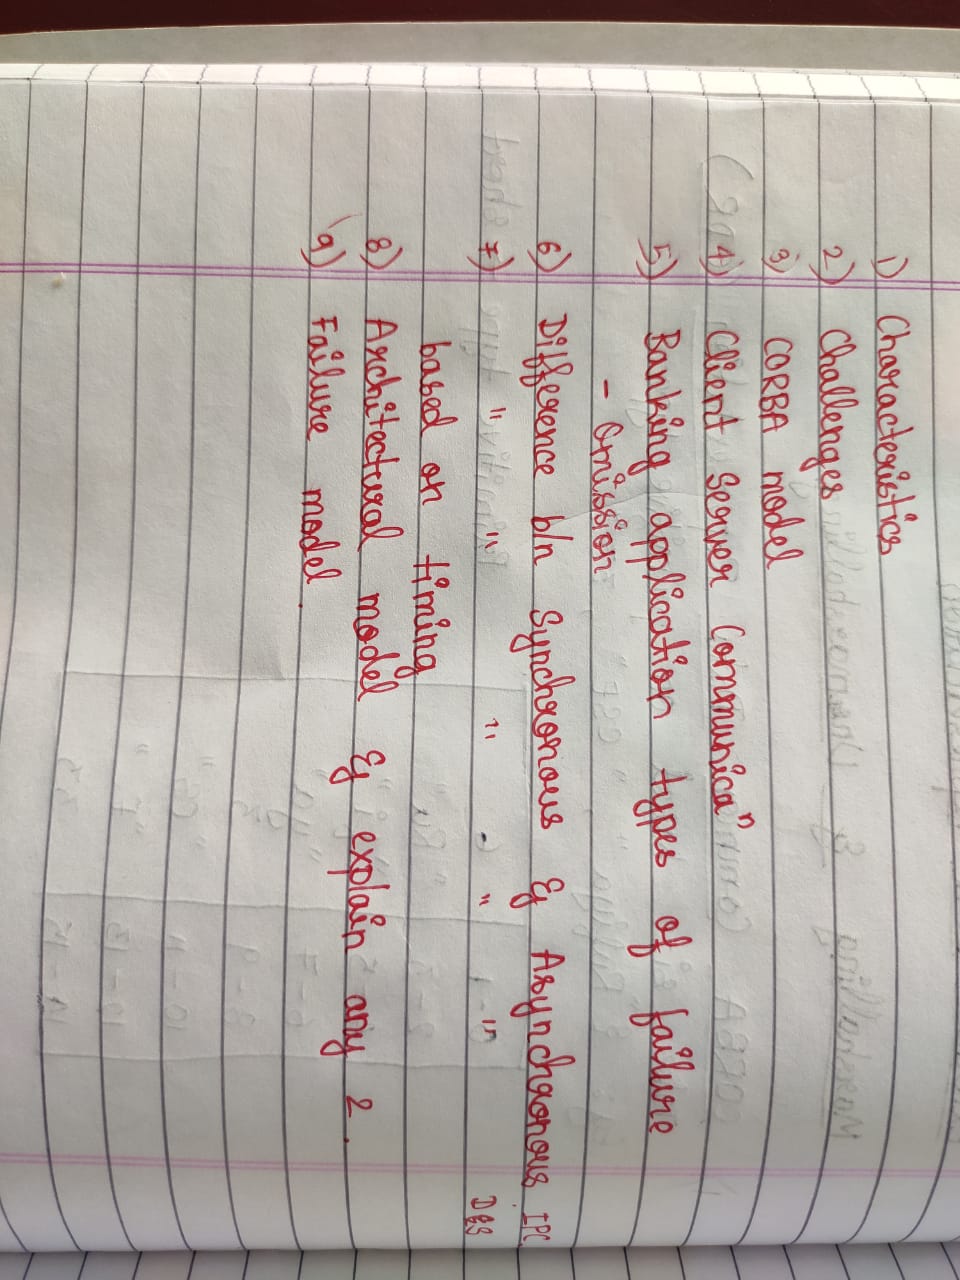 1) Characteristics
2) Challenges
3) CORBA model
4) Client Server Communicaⁿ
5) Banking application types of failure
- Omission
6) Difference b/n Synchronous & Asynchronous IPC
7) " " " " " D&S
based on timing
8) Architectural model & explain any 2.
9) Failure model.